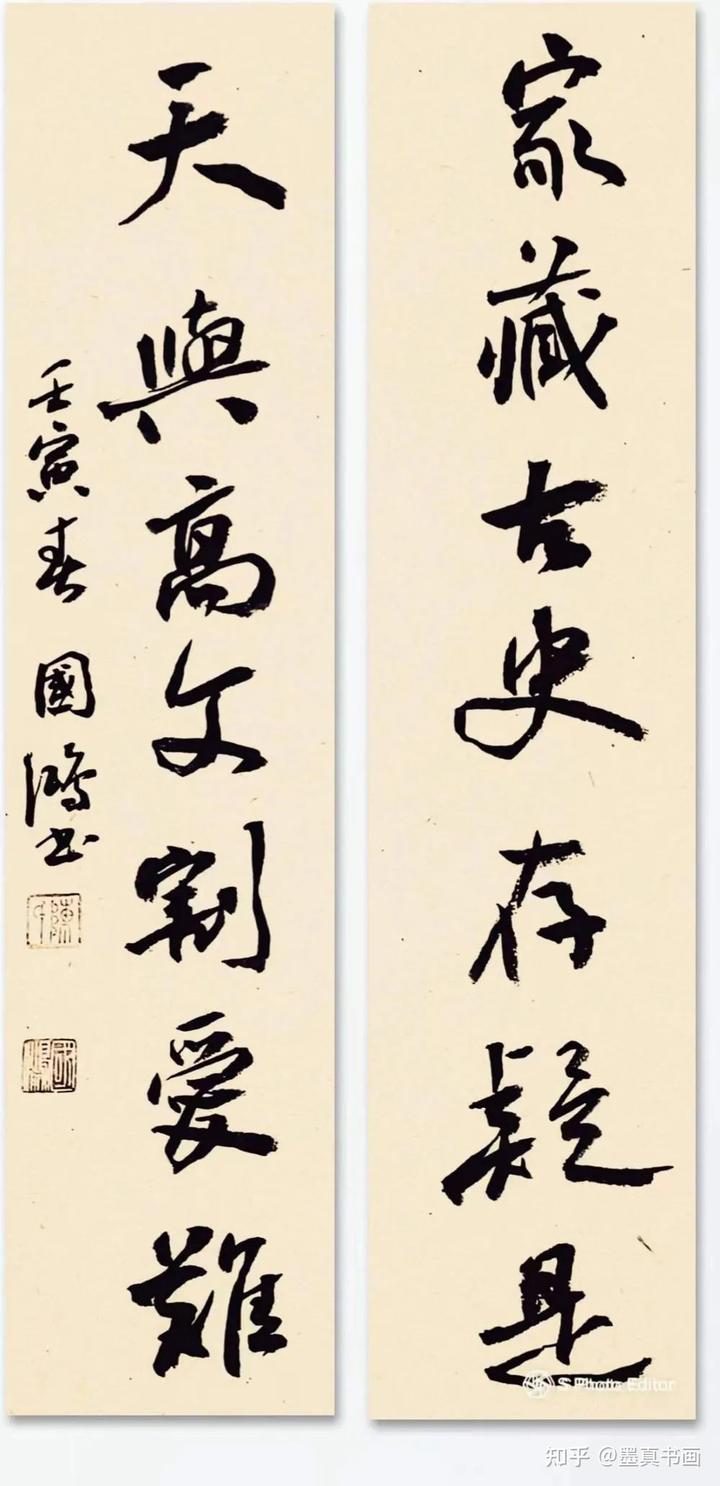 家藏古史存疑是
天與高文割愛難
壬寅春 國鴻書
陳
國鴻
S Photo Editor
知乎 @墨真书画